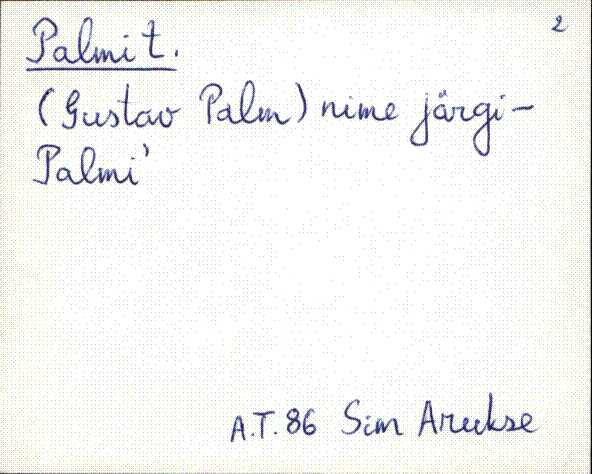 2
Palmi t.
(Gustav Palm) nime järgi-
Palmi'
A.T. 86 Sim Arukse